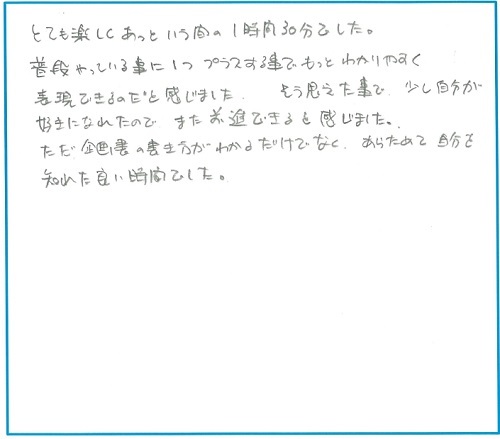 とても楽しくあっという間の1時間30分でした。
普段やっている事に1つプラスする事でもっとわかりやすく
表現できるのだと感じました。 そう思えた事で、少し自分が
好きになれたので また前進できると感じました。
ただ企画書の書き方がわかるだけでなく、あらためて自分を
知れた良い時間でした。